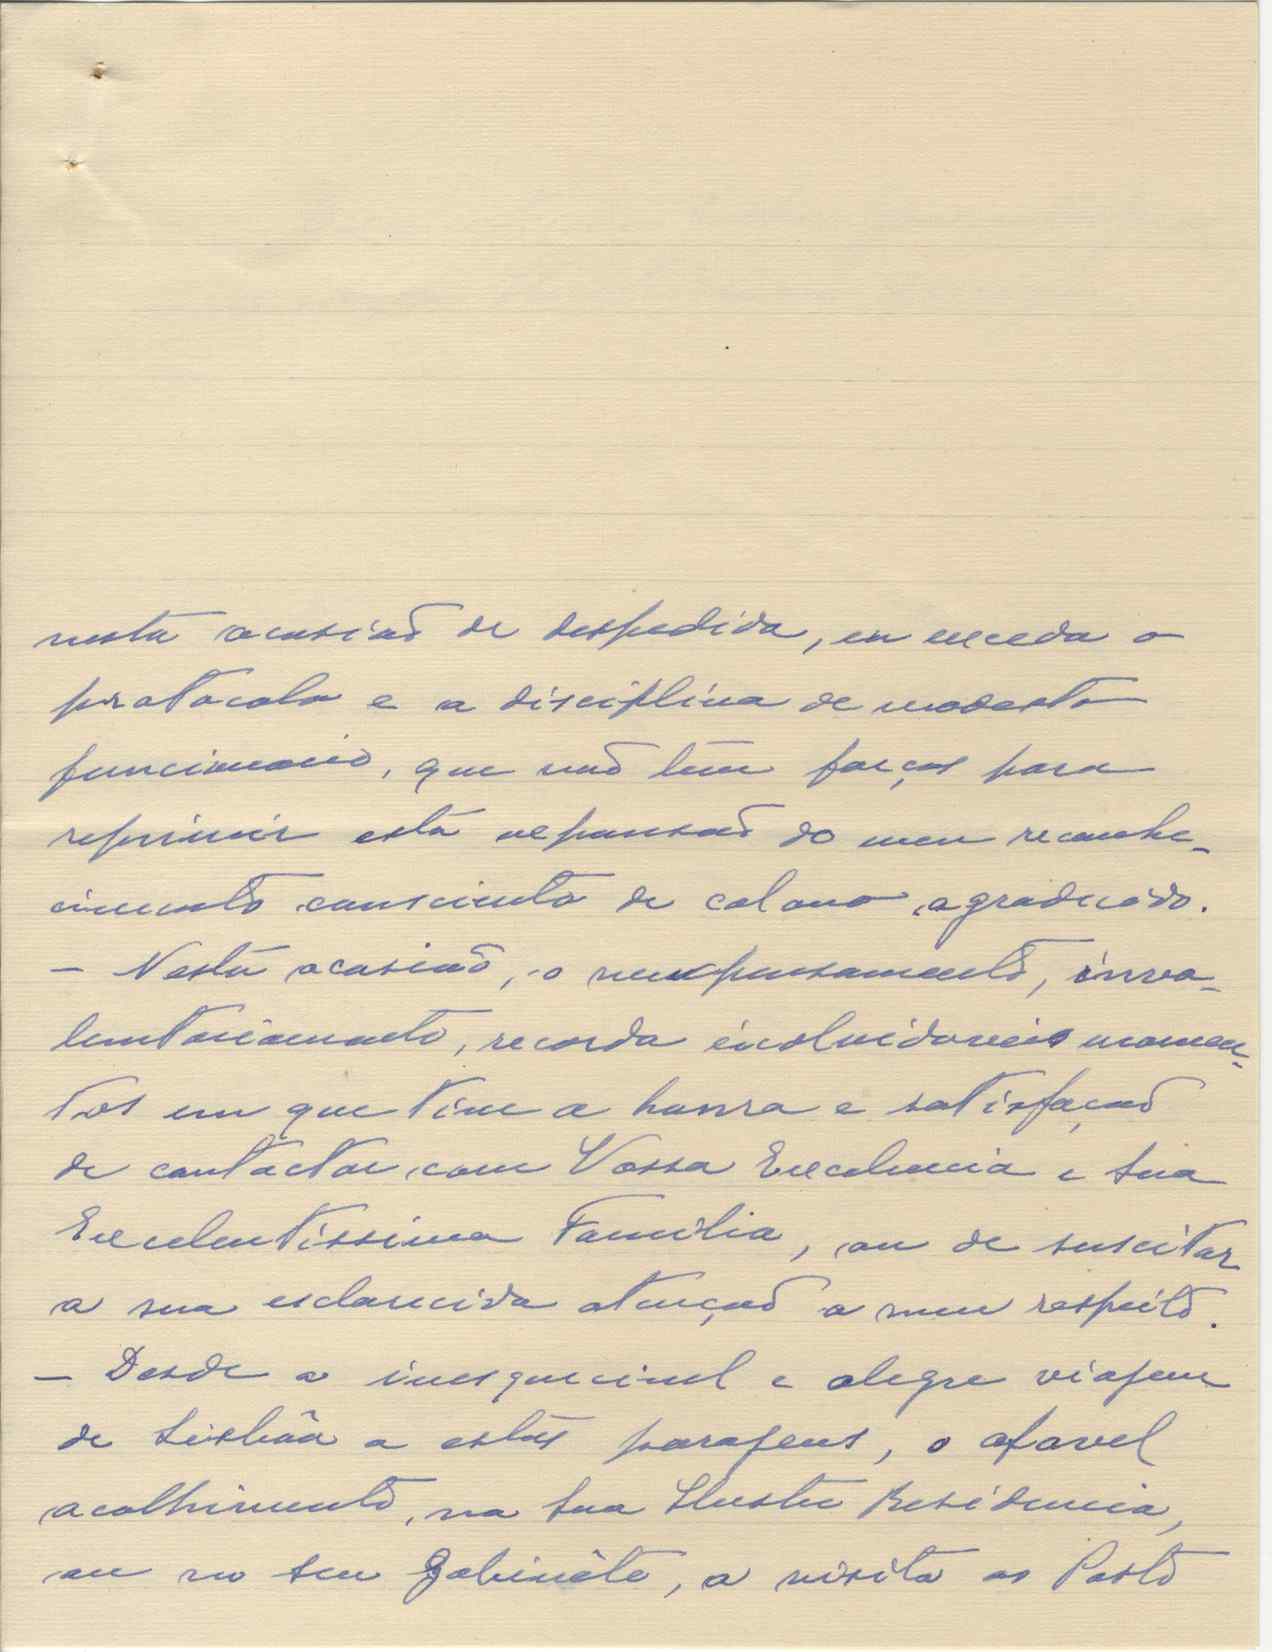 nesta ocasião de despedida, eu exceda o
protocolo e a disciplina de modesto
funcionário, que não têm forças para
reprimir esta expansão do meu reconhe-
cimento consciente de colono agradecido.
– Nesta ocasião, o meu pensamento, invo-
luntariamente, recorda inolvidaveis momen-
tos em que tive a honra e satisfação
de contactar com Vossa Excelencia e Sua
Excelentissima Familia, ou de suscitar
a sua esclarecida atenção a meu respeito.
– Desde a inesquecivel e alegre viajem
de Lisbôa a estas parajens, o afavel
acolhimento, na Sua Ilustre Residencia,
ou no Seu Gabinête, a visita ao Posto